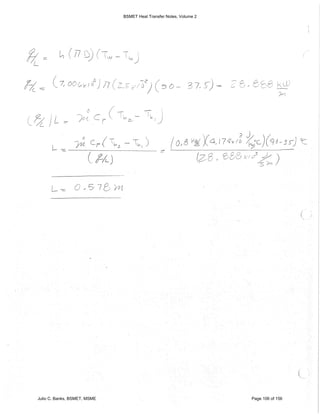 BSMET Heat Transfer Notes, Volume 2
q/L = h (π D) (Tw − Tb)
q/L = (7.00×10³) π (25×10⁻³) (90 − 37.5) = 28.888 kW/m
(q/L) L = ṁ Cp (Tb2 − Tb1)
L = ṁ Cp (Tb2 − Tb1) / (q/L) = (0.8 kg/s)(4.178×10³ J/kg°C)(41−35) °C / (28.888×10³ J/s m)
L = 0.578 m
Julio C. Banks, BSMET, MSME
Page 158 of 158